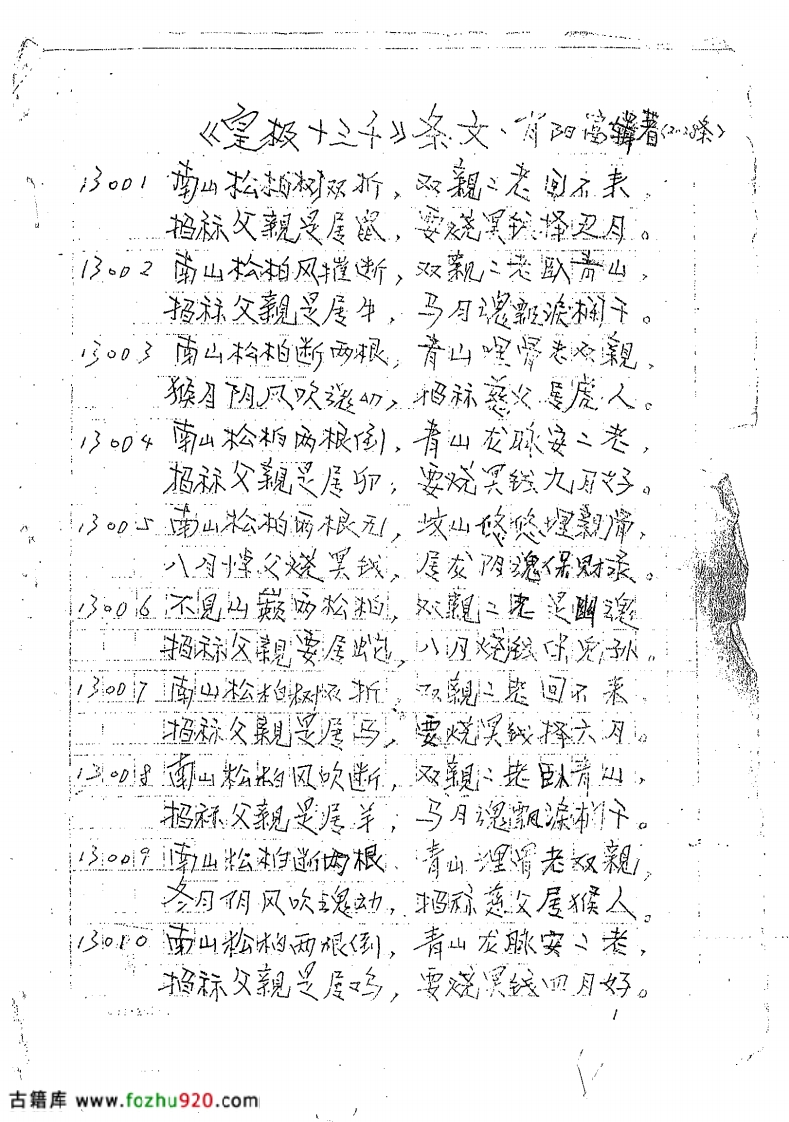 《皇极十三千》条文·肖阳 著(2028条)
13001 南山松柏树双折，双親二老回不来，
招禄父親是居鼠，要烧冥钱择丑月。
13002 南山松柏风摧断，双親二老卧青山，
招禄父親是居牛，马月魂飘淚栏干。
13003 南山松柏断两根，青山埋骨老双親，
猴月阴风吹 动，招禄慈父居虎人。
13004 南山松柏两根倒，青山龙脉安二老，
招禄父親是居卯，要烧冥钱九月好。
13005 南山松柏两根无， 山悠悠埋親骨，
八月悼父烧冥钱，居龙阴魂保财禄。
13006 不见山巅两松柏，双親二老是幽魂
招禄父親要居蛇，八月烧钱佑兒孙。
13007 南山松柏树双折，双親二老回不来
招禄父親是居马，要烧冥钱择六月。
13008 南山松柏风吹断，双親二老卧青山，
招禄父親是居羊，马月魂飘淚栏干。
13009 南山松柏断两根 青山埋骨老双親，
冬月阴风吹魂动，招禄慈父居猴人。
13010 南山松柏两根倒，青山龙脉安二老，
招禄父親是居鸡，要烧冥钱四月好。
1
古籍库 www.fozhu920.com